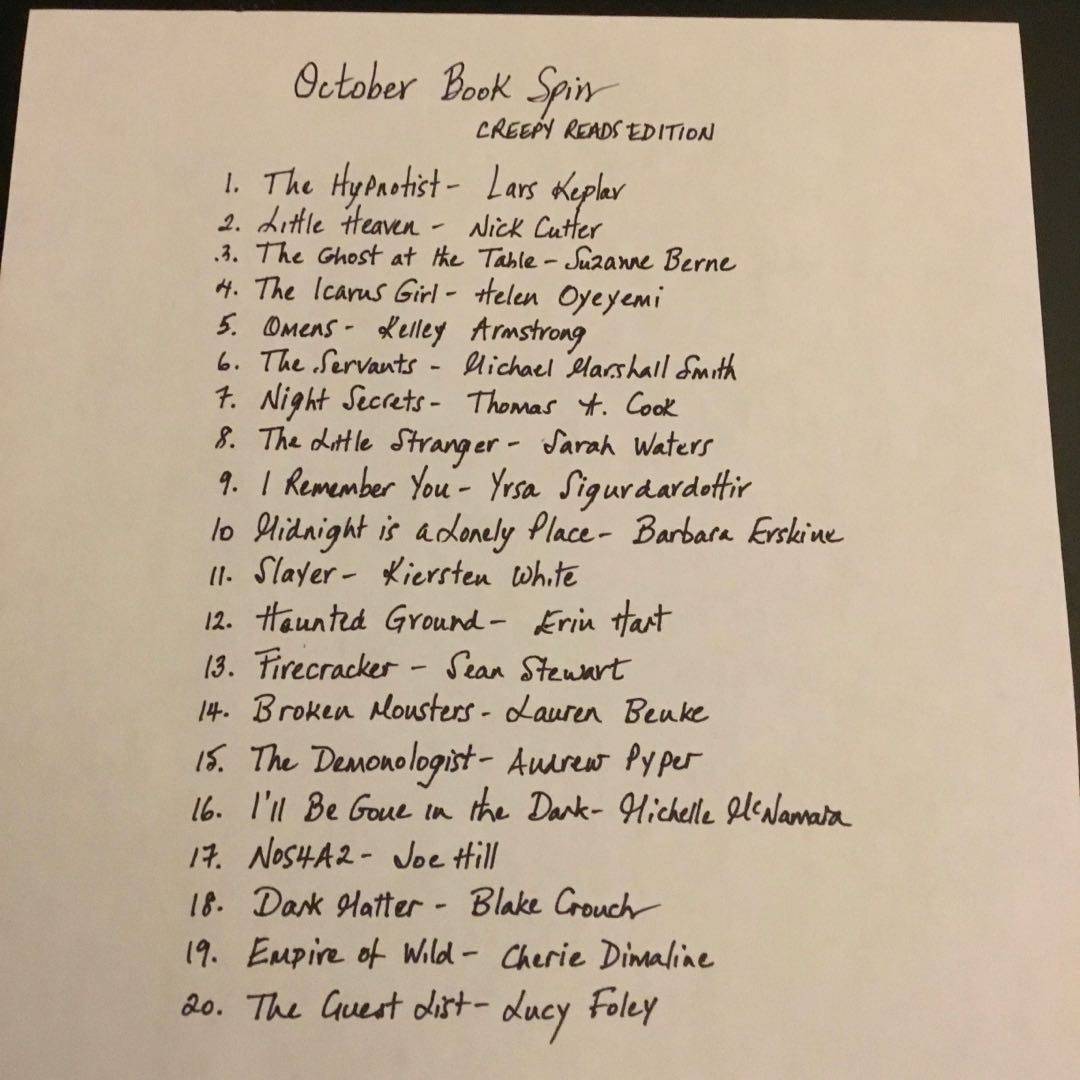 October Book Spin
CREEPY READS EDITION
1. The Hypnotist - Lars Keplar
2. Little Heaven - Nick Cutter
3. The Ghost at the Table - Suzanne Berne
4. The Icarus Girl - Helen Oyeyemi
5. Omens - Kelley Armstrong
6. The Servants - Michael Marshall Smith
7. Night Secrets - Thomas H. Cook
8. The Little Stranger - Sarah Waters
9. I Remember You - Yrsa Sigurdardottir
10 Midnight is a Lonely Place - Barbara Erskine
11. Slayer - Kiersten White
12. Haunted Ground - Erin Hart
13. Firecracker - Sean Stewart
14. Broken Monsters - Lauren Beuke
15. The Demonologist - Andrew Pyper
16. I'll Be Gone in the Dark - Michelle McNamara
17. NOS4A2 - Joe Hill
18. Dark Matter - Blake Crouch
19. Empire of Wild - Cherie Dimaline
20. The Guest List - Lucy Foley